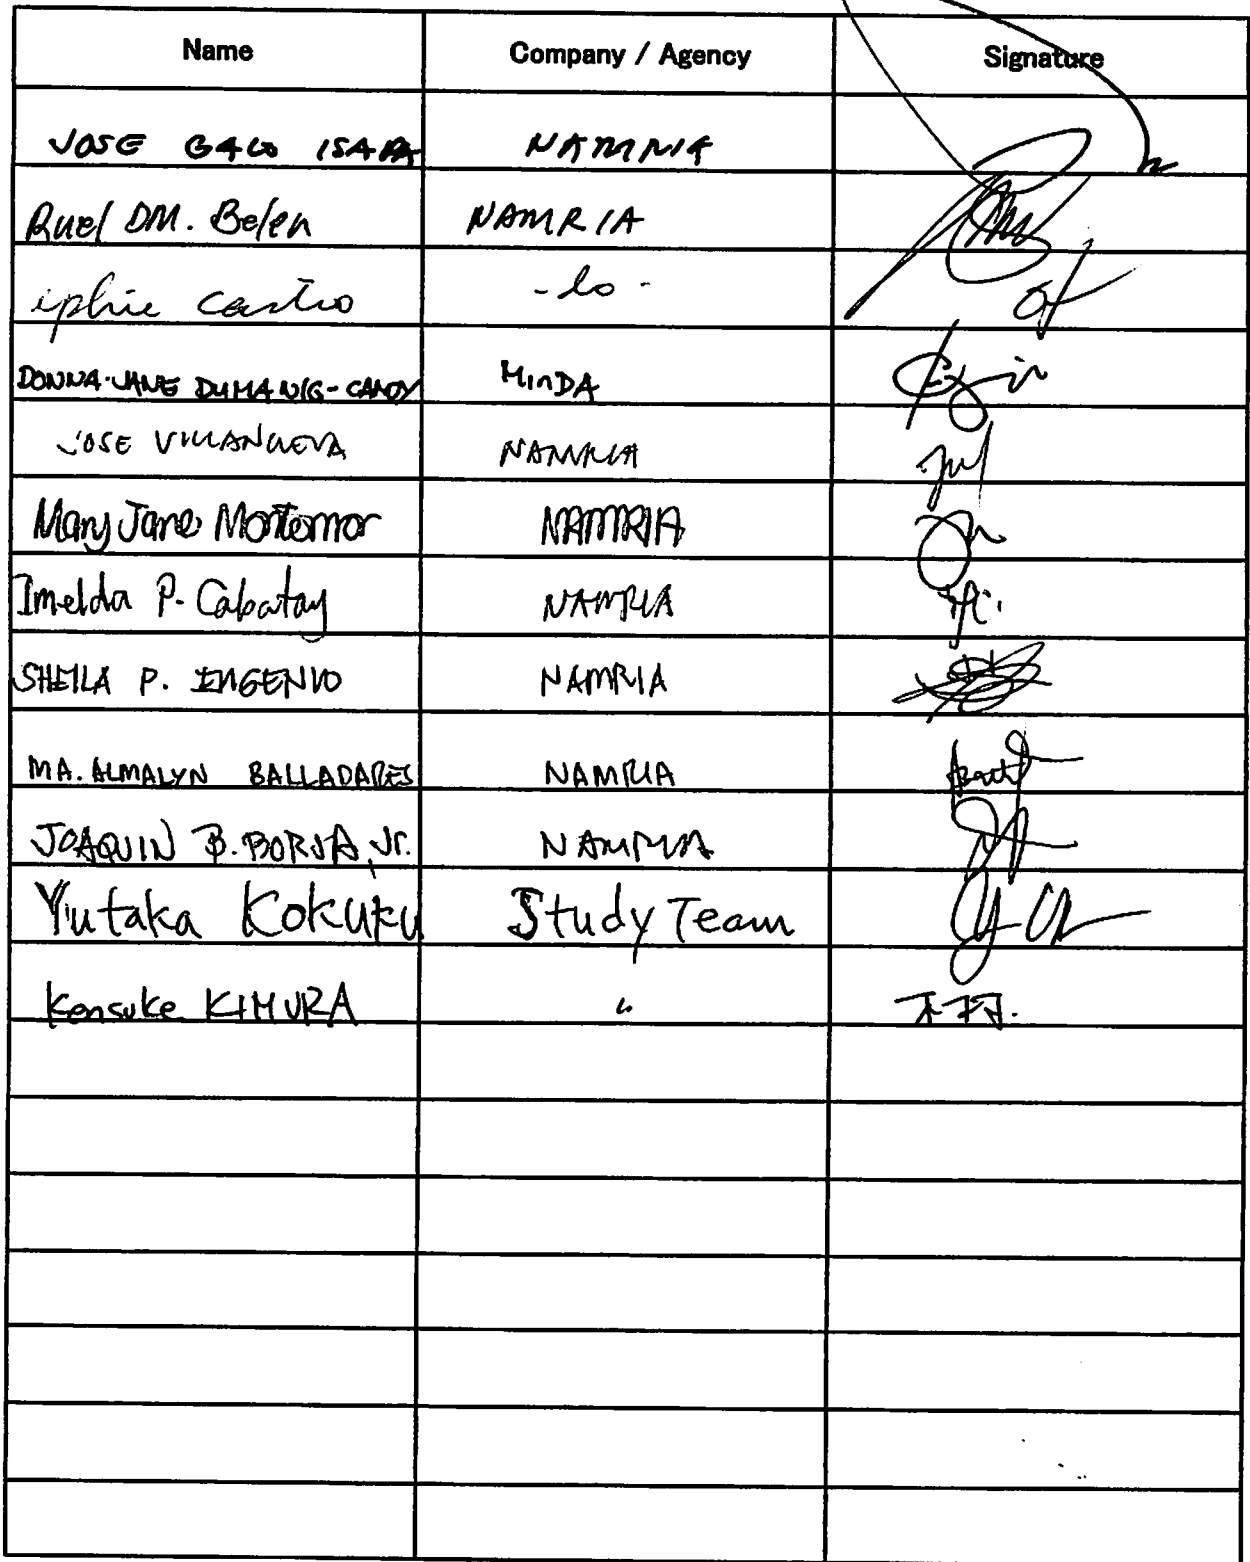 Name Company / Agency Signature
JOSE GALO ISADA NAMRIA
Ruel DM. Belen NAMRIA
iphie Castro - do -
DONNA-JANE DUMANIG-CANOY MinDA
JOSE VILLANUEVA NAMRIA
Mary Jane Montemor NAMRIA
Imelda P. Cabatay NAMRIA
SHEILA P. INGENIO NAMRIA
MA. ALMALYN BALLADARES NAMRIA
JOAQUIN B. BORJA, Jr. NAMRIA
Yutaka Kokufu Study Team
Kensuke KIMURA "